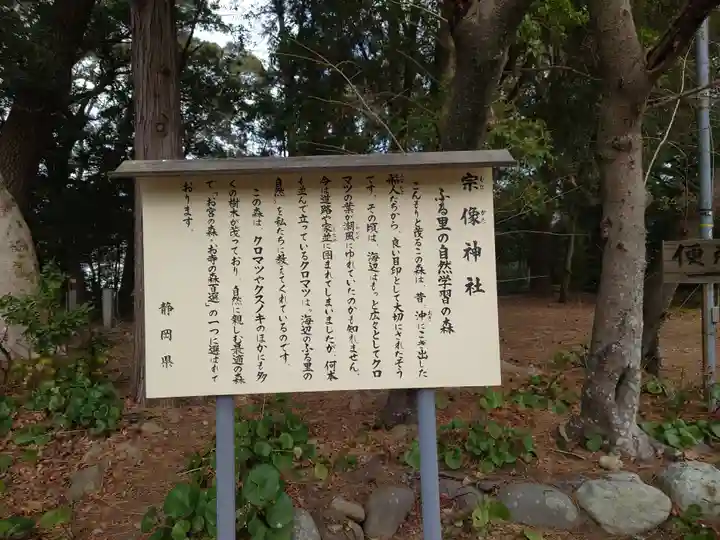 宗像神社
むな かた
ふる里の自然学習の森
こんもりと茂るこの森は、昔、沖にこぎ出した
船人たちから、良い目印として大切にされたそう
です。その頃は、海辺はもっと広々としてクロ
マツの葉が潮風にゆれていたのかも知れません。
今は道路や家並に囲まれてしまいましたが、何本
も並んで立っているクロマツは、"海辺のふる里の
自然"を私たちに教えてくれているのです。
この森は、クロマツやクスノキのほかにも多
くの樹木が茂っており、自然に親しむ最適の森
で「お宮の森・お寺の森百選」の一つに選ばれて
おります。
静岡県
便